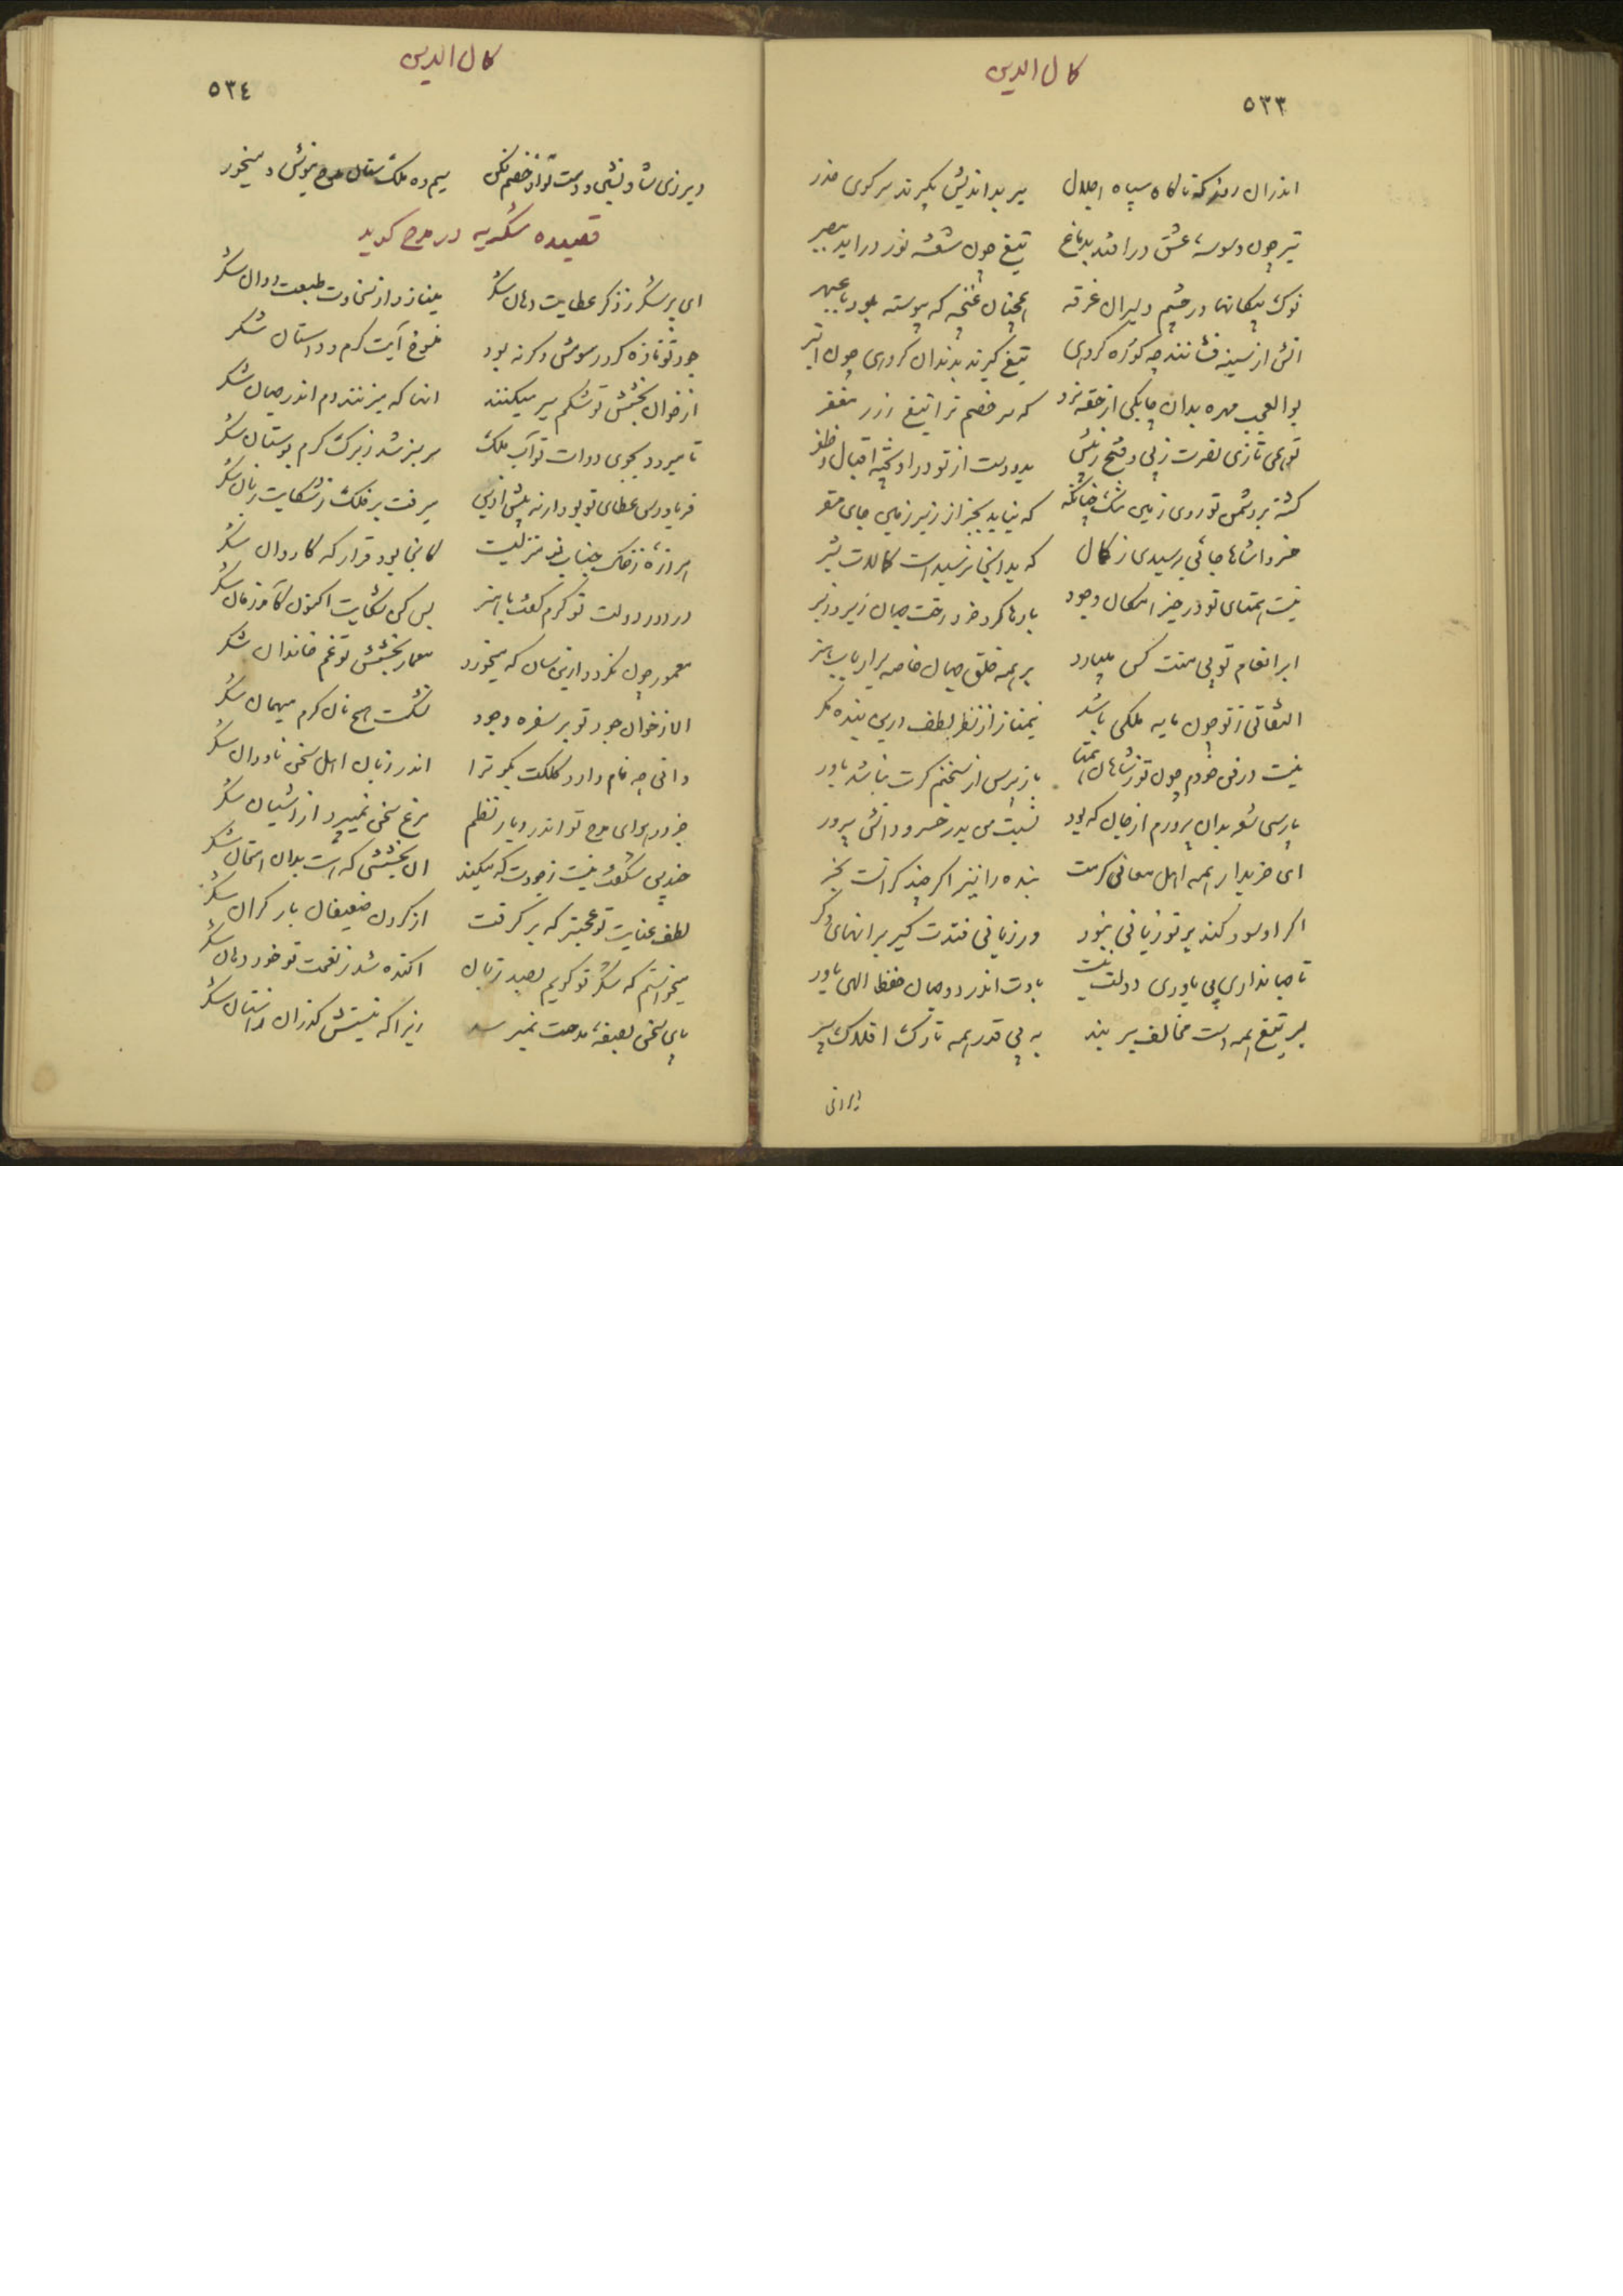 کمال الدین
٥٣٣
اندران روز که ناگاه سپاه اجلال میر بداندیش بگیرند سر کوی حذر
تیر چون وسوسه عشق درافتد بدماغ تیغ چون شعشه نور دراید ببصر
نوک پیکانها در چشم دلیران غرقه همچنان غنچه که پیوسته بود با عبهر
اتش از سینه فشانند چه کوزه کردی تیغ گیرند بدندان کردی چون
بوالعجب مهره بدان چابکی از حقه نبرد که سر خصم ترا تیغ زرر مغفر
تو همی تازی نصرت ز پی و فتح ز پیش بدو دست از تو دراویخته اقبال و ظفر
کشته بر دشمن تو روی زمین تنک چنانکه که نیابد بجز از زیر زمین جای مقر
خسروا شاها جائی برسیدی ز کمال که بدانجا نرسید است کمالات بشر
نیست همتای تو در حیز امکان وجود بارها کرد خرد رخت جهان زیر و زبر
ابر انعام تو بی منت کس میبارد بر همه خلق جهان خاصه بر ارباب هنر
التفاتی ز تو چون مایه ملکی باشد نیمناز از نظر لطف درین بنده نکر
نیست در فن خودم چون تو ز شاهان همتا باز پرس از سخنم کرت نباشد باور
پارسی شعر بدان پرورم از جان که بود نسبت من بدر خسرو دانش پرور
ای خریدار همه اهل معانی کرمت بنده را نیز اکر چند کرانست بخر
اکر او سود کند بر تو زیانی نبود ور زیانی فتدت کیر بر انهای دکر
تا جهانداری بی یاوری دولت نیست بادت اندر دو جهان حفظ الهی یاور
بسر تیغ همه دست مخالف بر بند به پی قدر همه تارک افلاک سپر
دیرزی
کمال الدین
٥٣٤
دیرزی شاد نشین دوست نواز خصم فکن سیم ده ملک ستان مدح نیوش و میخور
قصیده شکریه در مدح کوید
ای پر شکر ز ذکر عطایت دهان شکر مینازد از سخاوت طبعت روان شکر
جود تو تازه کرد رسومش وکرنه بود منسوخ آیت کرم و داستان شکر
از خوان بخشش تو شکم سیر میکنند انها که میزنند دم اندر جهان شکر
تا میرود بجوی دوات تو آب ملک سرسبز شد ز برک کرم بوستان شکر
فریادرس عطای تو بود ارنه پیش ازین میرفت بر فلک ز شکایت زبان شکر
امروز خاک جناب تو منزلیست کانجا بود قرار که کاروان شکر
در دور دولت تو کرم کفت با هنر بس کن شکایت اکنون کآمد زمان شکر
معمور چون نکردد ازین سان که میخورد معمار بخشش تو غم خاندان شکر
الا ز خوان جود تو بر سفره وجود نشکست هیچ نان کرم میهمان شکر
دانی چه نام دارد کلکت بکو ترا اندر زبان اهل سخن ناودان شکر
جز در هوای مدح تو اندر دیار نظم مرغ سخن نمیپرد از اشیان شکر
چندین شکفت نیست ز جودت که میکند ان بخششی که هست بدان امتحان شکر
لطف عنایت تو عجبتر که بر کرفت از کردن ضعیفان بار کران شکر
میخواستم که شکر تو کویم بصد زبان اکنده شد ز نعمت تو خود دهان شکر
پای سخن بصفه مدحت نمیرسد زیرا که نیستش کذران استان شکر